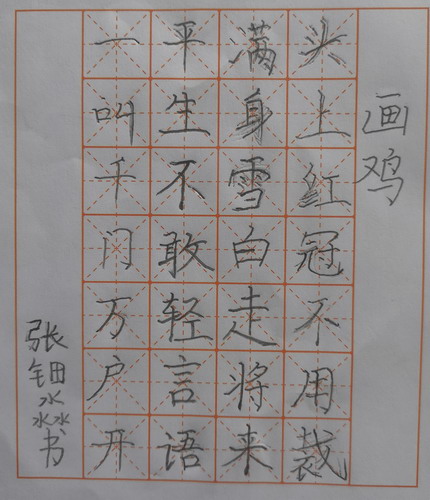 画鸡
头上红冠不用裁
满身雪白走将来
平生不敢轻言语
一叫千门万户开
张钿淼书